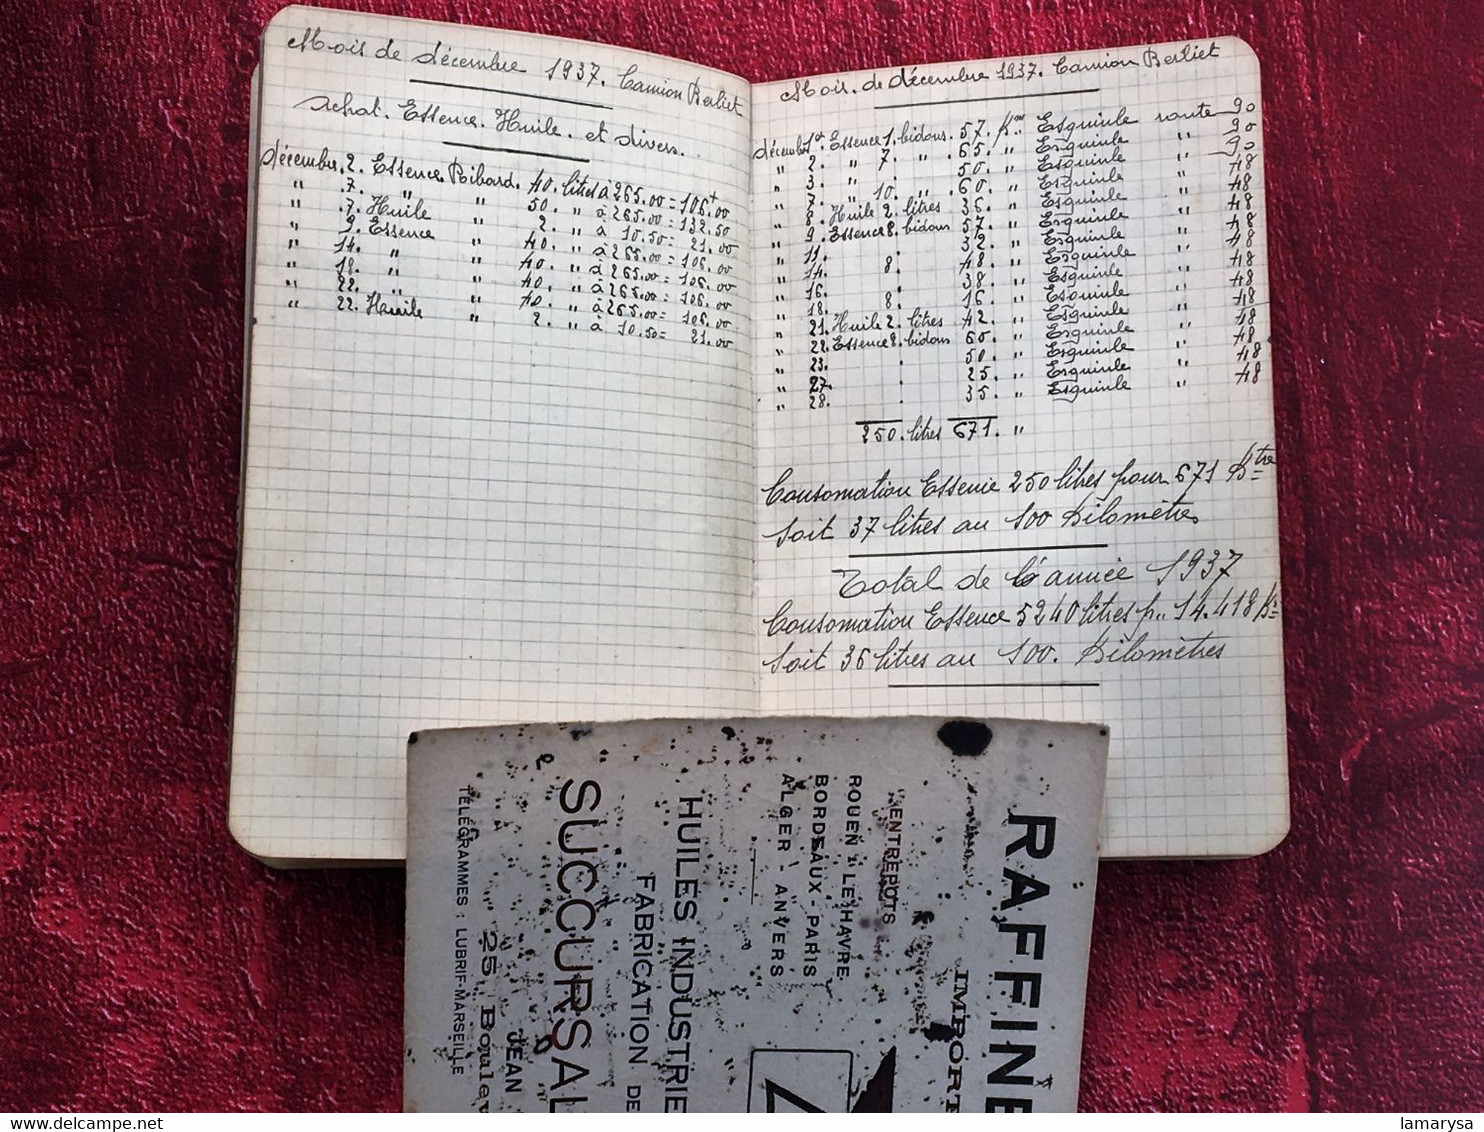 Mois de décembre 1937. Camion Berliet
Achat. Essence. Huile. et divers.
décembre. 2. Essence Ribard. 40. litres à 265.00 = 106.00
" 7. " " 50. " à 265.00 = 132.50
" 7. Huile " 2. " à 10.50 = 21.00
" 9. Essence " 40. " à 265.00 = 106.00
" 14. " " 40. " à 265.00 = 106.00
" 18. " " 40. " à 265.00 = 106.00
" 22. " " 40. " à 265.00 = 106.00
" 22. Huile " 2. " à 10.50 = 21.00
Mois. de décembre 1937. Camion Berliet
décembre 1er Essence 1. bidons. 57. Km Esquinle route 90
" 2. " 7. " 65. " Esquinle " 90
" 3. " . 50. " Esquinle " 90
" 7. " 10. " 60. " Esquinle " 48
" 8. Huile 2. litres 36. " Esquinle " 48
" 9. Essence 8. bidons 57. " Esquinle " 48
" 11. . 32. " Esquinle " 48
" 14. 8. 48. " Esquinle " 48
" 16. . 38. " Esquinle " 48
" 18. 8. 16. " Esquinle " 48
" 21. Huile 2. litres 42. " Esquinle " 48
" 22. Essence 8. bidons 60. " Esquinle " 48
" 23. . 50. " Esquinle " 48
" 27. . 25. " Esquinle " 48
" 28. . 35. " Esquinle " 48
250. litres 671. "
Consomation Essence 250 litres pour 671 Ktre
Soit 37 litres au 100 Kilomètres
Total de l'année 1937
Consomation Essence 5240 litres p.. 14.418 K
Soit 36 litres au 100. Kilomètres
RAFFINE
IMPORT
ENTREPOTS
ROUEN - LE HAVRE
BORDEAUX - PARIS
ALGER - ANVERS
HUILES INDUSTRIE
FABRICATION DE
SUCCURSAL
JEAN
25, Boulev
TÉLÉGRAMMES : LUBRIF-MARSEILLE
delcampe.net
lamarysa